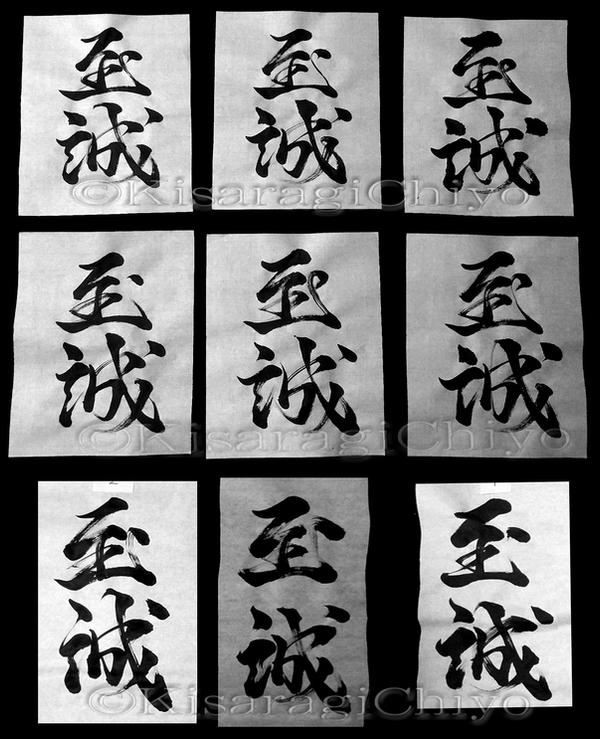 至誠 至誠 至誠
©KisaragiChiyo
至誠 至誠 至誠
©KisaragiChiyo
2
至誠 至誠 至誠
©KisaragiChiyo